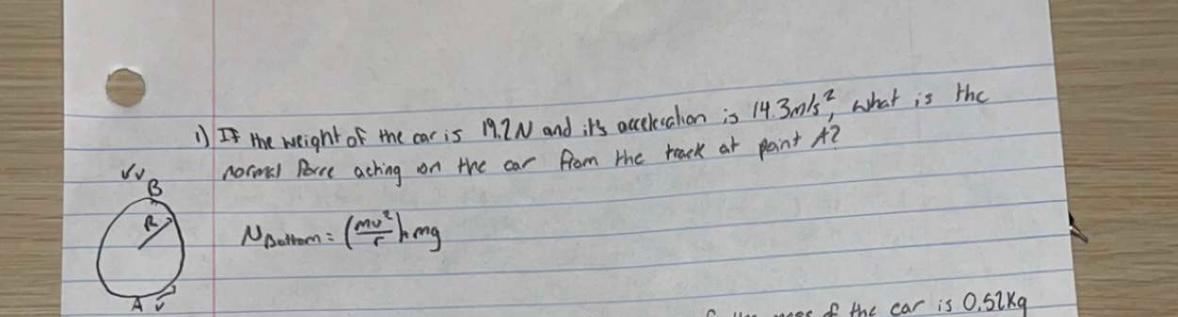 1) If the weight of the car is 19.2N and it's acceleration is 14.3m/s², what is the
normal force acting on the car from the track at point A?
B
R
N Bottom = (mv²/r)+mg
A v
of the car is 0.52kg